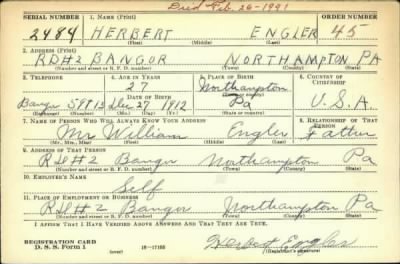 Died Feb. 26-1991
SERIAL NUMBER 1. NAME (Print) ORDER NUMBER
2484 HERBERT ENGLER 45
(First) (Middle) (Last)
2. ADDRESS (Print)
RD#2 BANGOR NORTHAMPTON PA
(Number and street or R. F. D. number) (Town) (County) (State)
3. TELEPHONE 4. AGE IN YEARS 5. PLACE OF BIRTH 6. COUNTRY OF CITIZENSHIP
27 Northampton
DATE OF BIRTH (Town or county)
Bangor 59R13 Dec 27 1912 Pa U.S.A.
(Exchange) (Number) (Mo.) (Day) (Yr.) (State or country)
7. NAME OF PERSON WHO WILL ALWAYS KNOW YOUR ADDRESS 8. RELATIONSHIP OF THAT PERSON
Mr William Engler Father
(Mr., Mrs., Miss) (First) (Middle) (Last)
9. ADDRESS OF THAT PERSON
Rd#2 Bangor Northampton Pa
(Number and street or R. F. D. number) (Town) (County) (State)
10. EMPLOYER'S NAME
Self
11. PLACE OF EMPLOYMENT OR BUSINESS
Rd#2 Bangor Northampton Pa
(Number and street or R. F. D. number) (Town) (County) (State)
I AFFIRM THAT I HAVE VERIFIED ABOVE ANSWERS AND THAT THEY ARE TRUE.
REGISTRATION CARD
D. S. S. Form 1 (over) Herbert Engler
(Registrant's signature)